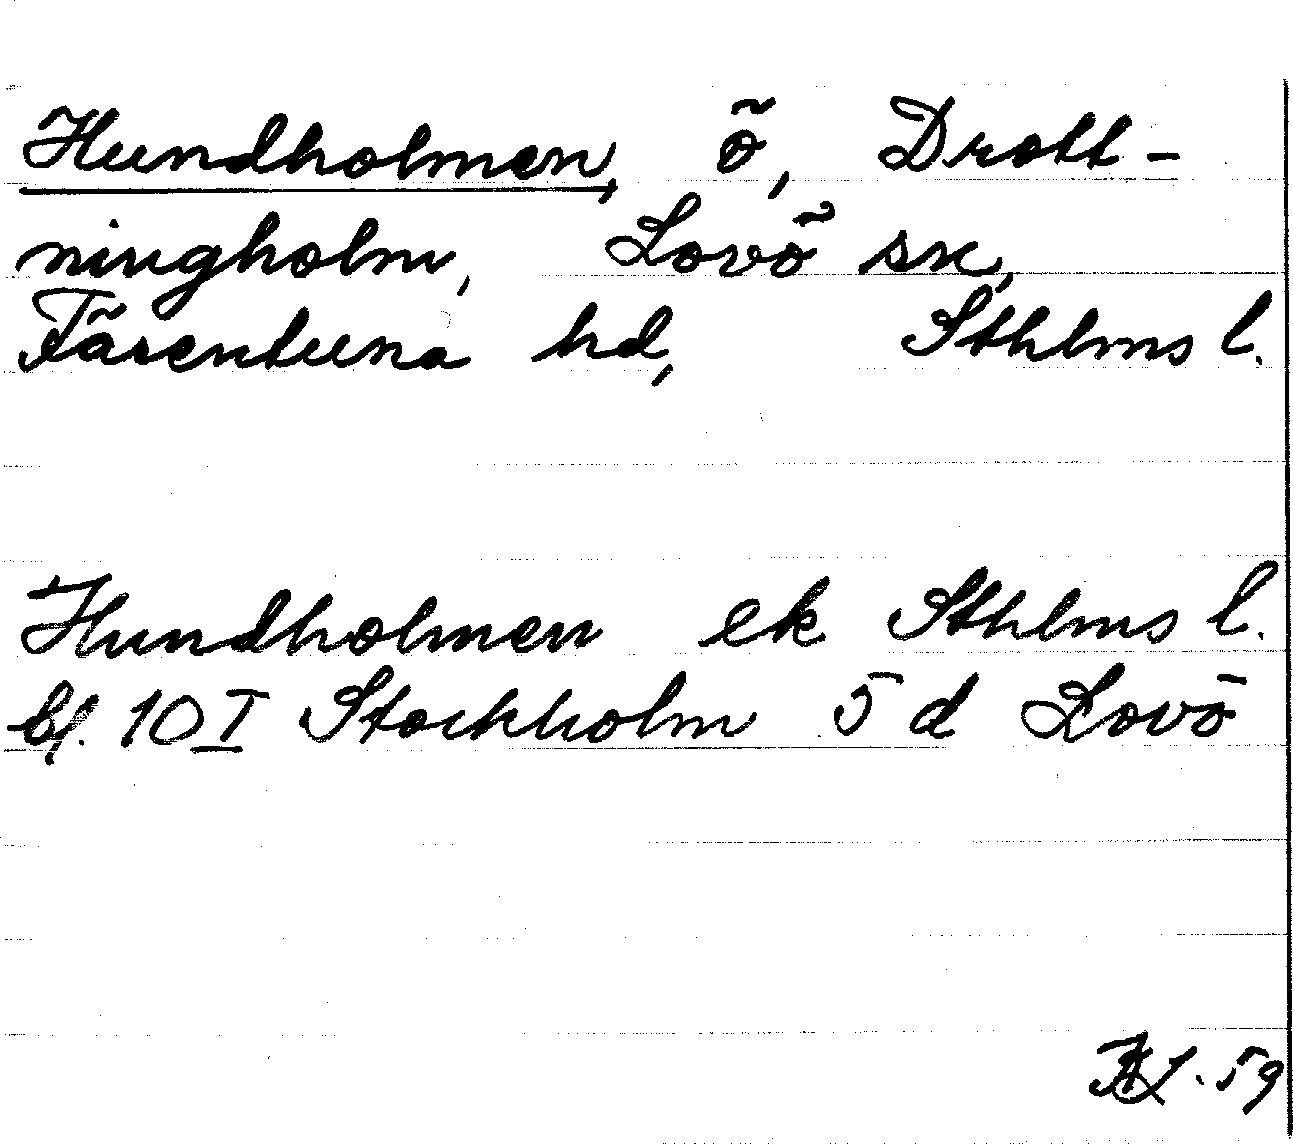 Hundholmen, ö, Drott-
ningholm, Lovö sn,
Färentuna hd, Sthlms l.
Hundholmen ek Sthlms l.
bl. 10 I Stockholm 5 d Lovö
59